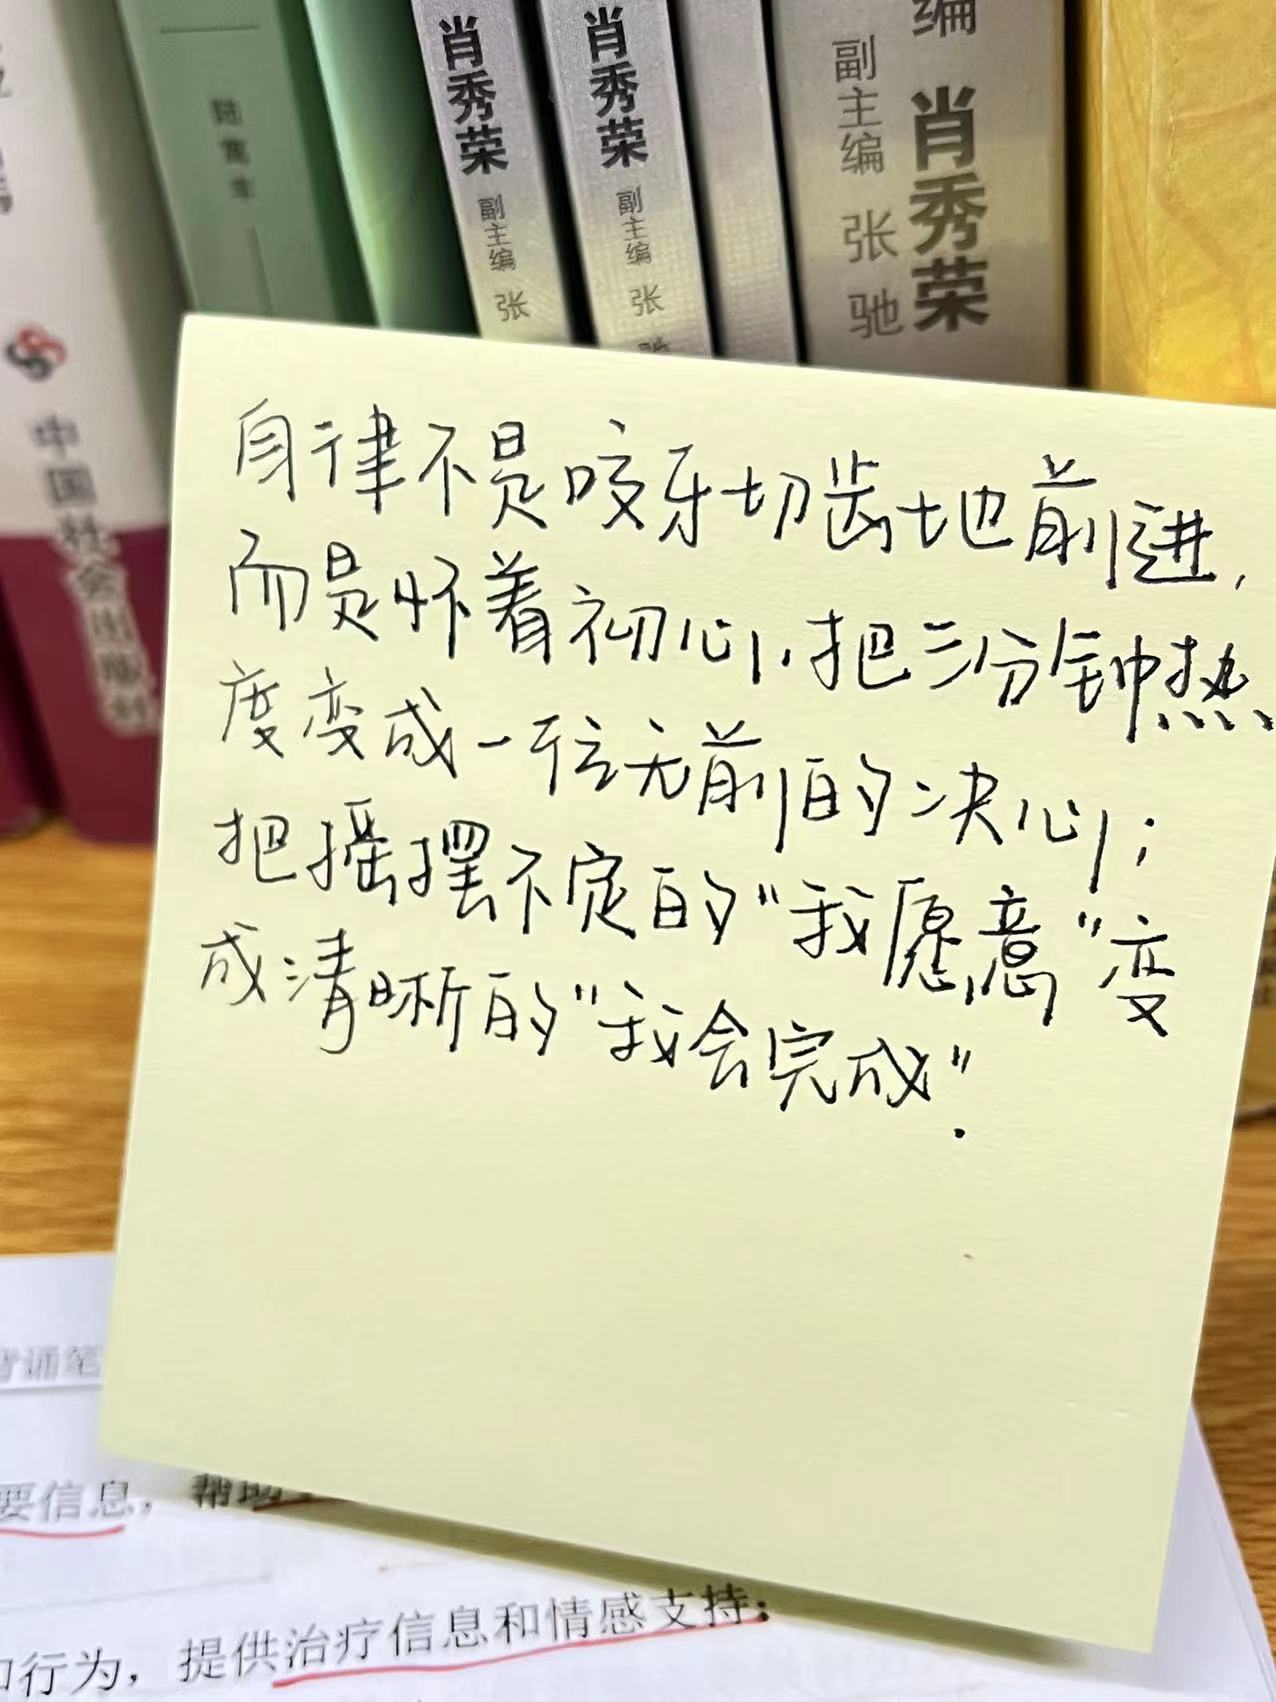 肖秀荣
副主编 张
肖秀荣
副主编 张
编 肖秀荣
副主编 张驰
中国社会出版社
自律不是咬牙切齿地前进,
而是怀着初心,把三分钟热
度变成一往无前的决心;
把摇摆不定的“我愿意”变
成清晰的“我会完成”.
背诵笔
要信息，帮助
和行为，提供治疗信息和情感支持；